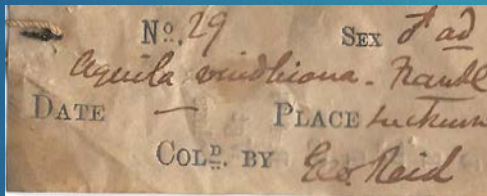 Nº. 29 SEX ♂ ad
Aquila vindhiana - Frankl
DATE — PLACE Lucknow
COLᴰ. BY Geo Reid